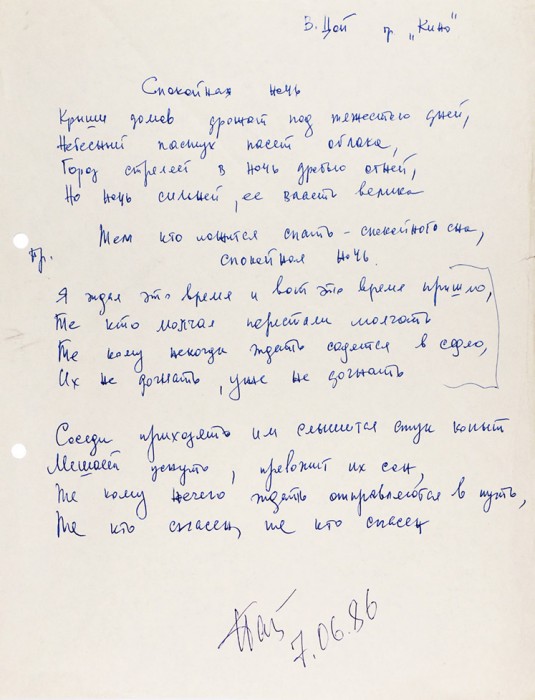 В. Цой гр „Кино"
Спокойная ночь
Крыши домов дрожат под тяжестью дней,
Небесный пастух пасет облака,
Город стреляет в ночь дробью огней,
Но ночь сильней, ее власть велика
Тем кто ложится спать – спокойного сна,
пр.
спокойная ночь.
Я ждал это время и вот это время пришло,
Те кто молчал перестали молчать
Те кому некогда ждать садятся в седло,
Их не догнать, уже не догнать
Соседи приходят им слышится стук копыт
Мешает уснуть, тревожит их сон,
Те кому нечего ждать отправляются в путь,
Те кто спасен, те кто спасен
7.06.86